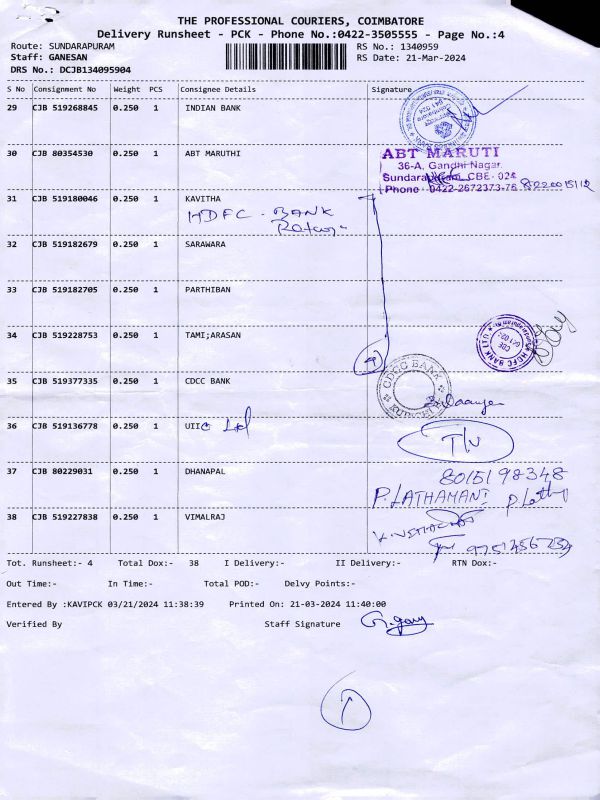 THE PROFESSIONAL COURIERS, COIMBATORE
Delivery Runsheet - PCK - Phone No.:0422-3505555 - Page No.:4
Route: SUNDARAPURAM RS No.: 1340959
Staff: GANESAN RS Date: 21-Mar-2024
DRS No.: DCJB134095904
S No Consignment No Weight PCS Consignee Details Signature
29 CJB 519268845 0.250 1 INDIAN BANK
30 CJB 80354530 0.250 1 ABT MARUTHI
ABT MARUTI
36-A, Gandhi Nagar,
CBE - 024
Phone : 0422-2672373-76
31 CJB 519180046 0.250 1 KAVITHA
HDFC - BANK
32 CJB 519182679 0.250 1 SARAWARA
33 CJB 519182705 0.250 1 PARTHIBAN
34 CJB 519228753 0.250 1 TAMI;ARASAN
HDFC BANK LTD
35 CJB 519377335 0.250 1 CDCC BANK
CDCC BANK
36 CJB 519136778 0.250 1 UIIC Ltd
37 CJB 80229031 0.250 1 DHANAPAL
8015198348
P. LATHAMANI
38 CJB 519227838 0.250 1 VIMALRAJ
Tot. Runsheet:- 4 Total Dox:- 38 I Delivery:- II Delivery:- RTN Dox:-
Out Time:- In Time:- Total POD:- Delvy Points:-
Entered By :KAVIPCK 03/21/2024 11:38:39 Printed On: 21-03-2024 11:40:00
Verified By Staff Signature